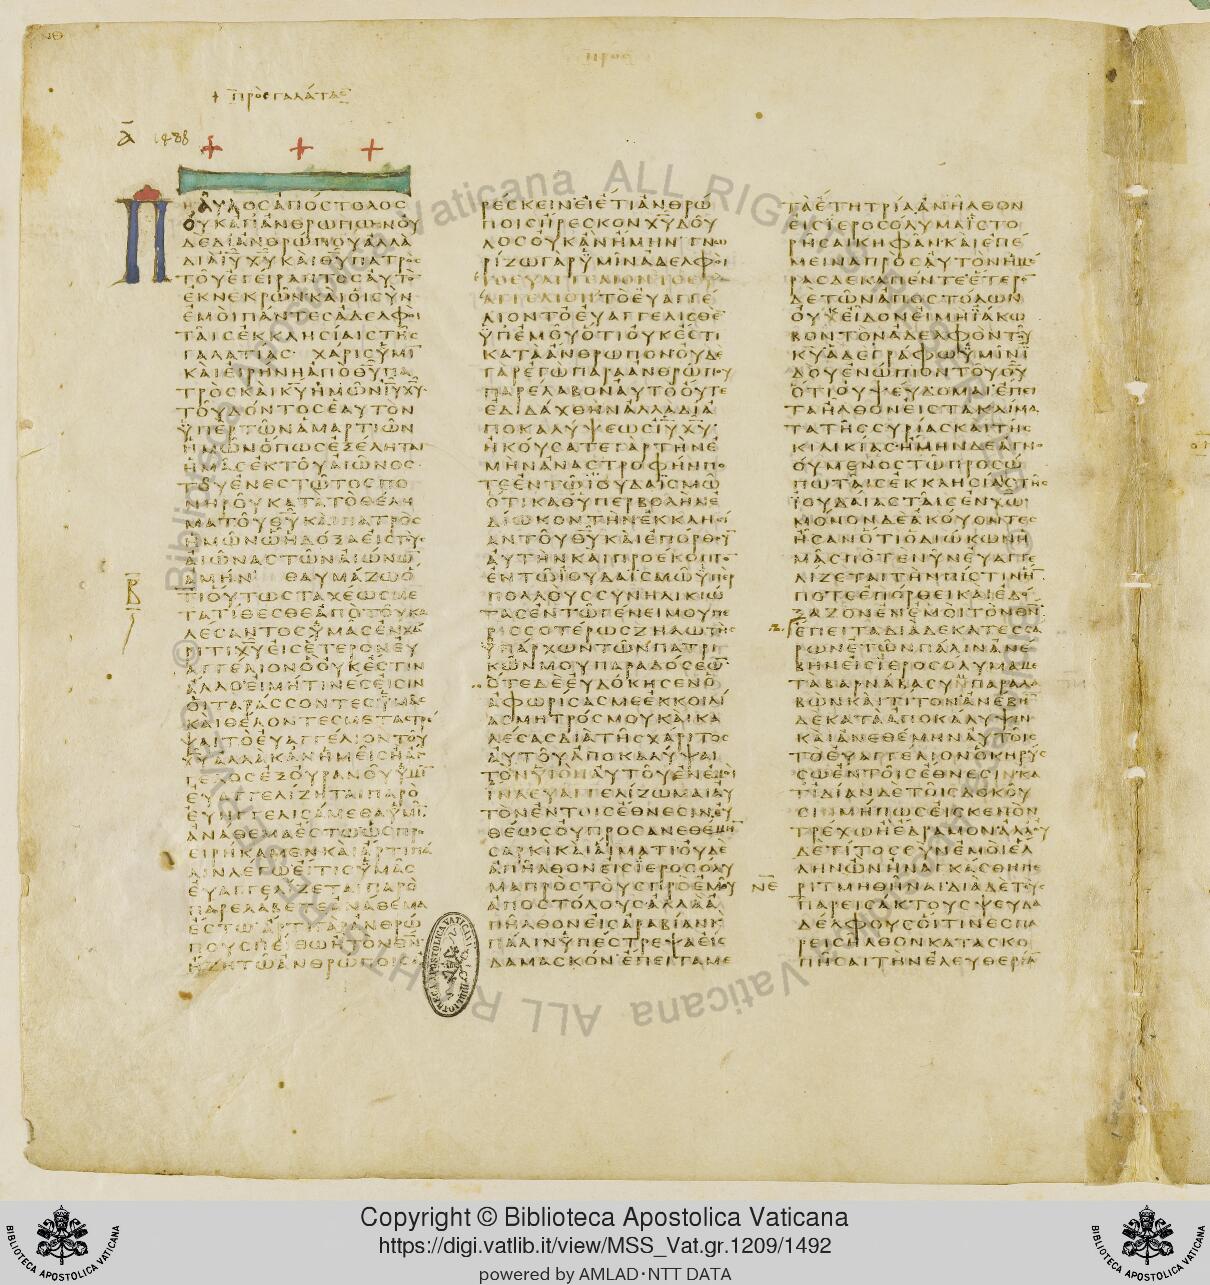 ΠΡΟΣ
+ πρὸς γαλάτας
Ᾱ 1488
ΠΑΥΛΟϹΑΠΟϹΤΟΛΟϹ
ΟΥΚΑΠΑΝΘΡΩΠΩΝΟΥ
ΔΕΔΙΑΝΘΡΩΠΟΥΑΛΛΑ
ΔΙΑΙΥΧΥΚΑΙΘΥΠΑΤΡΟϹ
ΤΟΥΕΓΕΙΡΑΝΤΟϹΑΥΤΟ
ΕΚΝΕΚΡΩΝΚΑΙΟΙϹΥΝ
ΕΜΟΙΠΑΝΤΕϹΑΔΕΛΦΟΙ
ΤΑΙϹΕΚΚΛΗϹΙΑΙϹΤΗϹ
ΓΑΛΑΤΙΑϹ ΧΑΡΙϹΥΜΙ
ΚΑΙΕΙΡΗΝΗΑΠΟΘΥΠΑ
ΤΡΟϹΚΑΙΚΥΗΜΩΝΙΥΧΥ
ΤΟΥΔΟΝΤΟϹΕΑΥΤΟΝ
ΥΠΕΡΤΩΝΑΜΑΡΤΙΩΝ
ΗΜΩΝΟΠΩϹΕΞΕΛΗΤΑΙ
ΗΜΑϹΕΚΤΟΥΑΙΩΝΟϹ
ΤΟΥΕΝΕϹΤΩΤΟϹΠΟ
ΝΗΡΟΥΚΑΤΑΤΟΘΕΛΗ
ΜΑΤΟΥΘΥΚΑΙΠΑΤΡΟϹ
ΗΜΩΝΩΗΔΟΞΑΕΙϹΤΟΥϹ
ΑΙΩΝΑϹΤΩΝΑΙΩΝΩ
ΑΜΗΝ ΘΑΥΜΑΖΩΟ
Β
ΤΙΟΥΤΩϹΤΑΧΕΩϹΜΕ
ΤΑΤΙΘΕϹΘΕΑΠΟΤΟΥΚΑ
ΛΕϹΑΝΤΟϹΥΜΑϹΕΝΧΑ
ΡΙΤΙΧΥΕΙϹΕΤΕΡΟΝΕΥ
ΑΓΓΕΛΙΟΝΟΟΥΚΕϹΤΙΝ
ΑΛΛΟΕΙΜΗΤΙΝΕϹΕΙϹΙΝ
ΟΙΤΑΡΑϹϹΟΝΤΕϹΥΜΑϹ
ΚΑΙΘΕΛΟΝΤΕϹΜΕΤΑϹΤΡΕ
ΨΑΙΤΟΕΥΑΓΓΕΛΙΟΝΤΟΥ
ΧΥΑΛΛΑΚΑΝΗΜΕΙϹΗΑΓ
ΓΕΛΟϹΕΞΟΥΡΑΝΟΥΥΜΙ
ΕΥΑΓΓΕΛΙΖΗΤΑΙΠΑΡΟ
ΕΥΗΓΓΕΛΙϹΑΜΕΘΑΥΜΙ
ΑΝΑΘΕΜΑΕϹΤΩΩϹΠΡΟ
ΕΙΡΗΚΑΜΕΝΚΑΙΑΡΤΙΠΑ
ΛΙΝΛΕΓΩΕΙΤΙϹΥΜΑϹ
ΕΥΑΓΓΕΛΙΖΕΤΑΙΠΑΡΟ
ΠΑΡΕΛΑΒΕΤΕΑΝΑΘΕΜΑ
ΕϹΤΩ ΑΡΤΙΓΑΡΑΝΘΡΩ
ΠΟΥϹΠΕΙΘΩΗΤΟΝΘΝ
ΗΖΗΤΩΑΝΘΡΩΠΟΙϹΑ
ΡΕϹΚΕΙΝΕΙΕΤΙΑΝΘΡΩ
ΠΟΙϹΗΡΕϹΚΟΝΧΥΔΟΥ
ΛΟϹΟΥΚΑΝΗΜΗΝ ΓΝΩ
ΡΙΖΩΓΑΡΥΜΙΝΑΔΕΛΦΟΙ
ΤΟΕΥΑΓΓΕΛΙΟΝΤΟΕΥ
ΑΓΓΕΛΙΟΝΤΟΕΥΑΓΓΕ
ΛΙΟΝΤΟΕΥΑΓΓΕΛΙϹΘΕ
ΥΠΕΜΟΥΟΤΙΟΥΚΕϹΤΙ
ΚΑΤΑΑΝΘΡΩΠΟΝΟΥΔΕ
ΓΑΡΕΓΩΠΑΡΑΑΝΘΡΩΠΟΥ
ΠΑΡΕΛΑΒΟΝΑΥΤΟΟΥΤΕ
ΕΔΙΔΑΧΘΗΝΑΛΛΑΔΙΑ
ΠΟΚΑΛΥΨΕΩϹΙΥΧΥ
ΗΚΟΥϹΑΤΕΓΑΡΤΗΝΕ
ΜΗΝΑΝΑϹΤΡΟΦΗΝΠΟ
ΤΕΕΝΤΩΙΟΥΔΑΙϹΜΩ
ΟΤΙΚΑΘΥΠΕΡΒΟΛΗΝΕ
ΔΙΩΚΟΝΤΗΝΕΚΚΛΗϹΙ
ΑΝΤΟΥΘΥΚΑΙΕΠΟΡΘΟΥ
ΑΥΤΗΝΚΑΙΠΡΟΕΚΟΠΤΟ
ΕΝΤΩΙΟΥΔΑΙϹΜΩΥΠΕΡ
ΠΟΛΛΟΥϹϹΥΝΗΛΙΚΙΩ
ΤΑϹΕΝΤΩΓΕΝΕΙΜΟΥΠΕ
ΡΙϹϹΟΤΕΡΩϹΖΗΛΩΤΗϹ
ΥΠΑΡΧΩΝΤΩΝΠΑΤΡΙ
ΚΩΝΜΟΥΠΑΡΑΔΟϹΕΩ
ΟΤΕΔΕΕΥΔΟΚΗϹΕΝΟ
ΑΦΟΡΙϹΑϹΜΕΕΚΚΟΙΛΙ
ΑϹΜΗΤΡΟϹΜΟΥΚΑΙΚΑ
ΛΕϹΑϹΔΙΑΤΗϹΧΑΡΙΤΟϹ
ΑΥΤΟΥΑΠΟΚΑΛΥΨΑΙ
ΤΟΝΥΙΟΝΑΥΤΟΥΕΝΕΜΟΙ
ΙΝΑΕΥΑΓΓΕΛΙΖΩΜΑΙΑΥ
ΤΟΝΕΝΤΟΙϹΕΘΝΕϹΙΝΕΥ
ΘΕΩϹΟΥΠΡΟϹΑΝΕΘΕΜΗ
ϹΑΡΚΙΚΑΙΑΙΜΑΤΙΟΥΔΕ
ΑΠΗΛΘΟΝΕΙϹΙΕΡΟϹΟΛΥ
ΜΑΠΡΟϹΤΟΥϹΠΡΟΕΜΟΥ
ΑΠΟϹΤΟΛΟΥϹΑΛΛΑΑ
ΠΗΛΘΟΝΕΙϹΑΡΑΒΙΑΝΚ
ΠΑΛΙΝΥΠΕϹΤΡΕΨΑΕΙϹ
ΔΑΜΑϹΚΟΝ ΕΠΕΙΤΑΜΕ
ΤΑΕΤΗΤΡΙΑΑΝΗΛΘΟΝ
ΕΙϹΙΕΡΟϹΟΛΥΜΑΙϹΤΟ
ΡΗϹΑΙΚΗΦΑΝΚΑΙΕΠΕ
ΜΕΙΝΑΠΡΟϹΑΥΤΟΝΗΜΕ
ΡΑϹΔΕΚΑΠΕΝΤΕΕΤΕΡΟ
ΔΕΤΩΝΑΠΟϹΤΟΛΩΝ
ΟΥΚΕΙΔΟΝΕΙΜΗΙΑΚΩ
ΒΟΝΤΟΝΑΔΕΛΦΟΝΤΟΥ
ΚΥΑΔΕΓΡΑΦΩΥΜΙΝΙ
ΔΟΥΕΝΩΠΙΟΝΤΟΥΘΥ
ΟΤΙΟΥΨΕΥΔΟΜΑΙΕΠΕΙ
ΤΑΗΛΘΟΝΕΙϹΤΑΚΛΙΜΑ
ΤΑΤΗϹϹΥΡΙΑϹΚΑΙΤΗϹ
ΚΙΛΙΚΙΑϹΗΜΗΝΔΕΑΓΝΟ
ΟΥΜΕΝΟϹΤΩΠΡΟϹΩ
ΠΩΤΑΙϹΕΚΚΛΗϹΙΑΙϹΤΗϹ
ΙΟΥΔΑΙΑϹΤΑΙϹΕΝΧΩ
ΜΟΝΟΝΔΕΑΚΟΥΟΝΤΕϹ
ΗϹΑΝΟΤΙΟΔΙΩΚΩΝΗ
ΜΑϹΠΟΤΕΝΥΝΕΥΑΓΓΕ
ΛΙΖΕΤΑΙΤΗΝΠΙϹΤΙΝΗ
ΠΟΤΕΕΠΟΡΘΕΙΚΑΙΕΔΟ
ΞΑΖΟΝΕΝΕΜΟΙΤΟΝΘΝ
ΕΠΕΙΤΑΔΙΑΔΕΚΑΤΕϹϹΑ
ΡΩΝΕΤΩΝΠΑΛΙΝΑΝΕ
ΒΗΝΕΙϹΙΕΡΟϹΟΛΥΜΑΜΕ
ΤΑΒΑΡΝΑΒΑϹΥΝΠΑΡΑΛΑ
ΒΩΝΚΑΙΤΙΤΟΝΑΝΕΒΗ
ΔΕΚΑΤΑΑΠΟΚΑΛΥΨΙΝ
ΚΑΙΑΝΕΘΕΜΗΝΑΥΤΟΙϹ
ΤΟΕΥΑΓΓΕΛΙΟΝΟΚΗΡΥϹ
ϹΩΕΝΤΟΙϹΕΘΝΕϹΙΝΚΑ
ΤΙΔΙΑΝΔΕΤΟΙϹΔΟΚΟΥ
ϹΙΜΗΠΩϹΕΙϹΚΕΝΟΝ
ΤΡΕΧΩΗΕΔΡΑΜΟΝΑΛΛΟΥ
ΔΕΤΙΤΟϹΟϹΥΝΕΜΟΙΕΛ
ΛΗΝΩΝΗΝΑΓΚΑϹΘΗΠΕ
ΝΕ
ΡΙΤΜΗΘΗΝΑΙΔΙΑΔΕΤΟΥϹ
ΠΑΡΕΙϹΑΚΤΟΥϹΨΕΥΔΑ
ΔΕΛΦΟΥϹΟΙΤΙΝΕϹΠΑ
ΡΕΙϹΗΛΘΟΝΚΑΤΑϹΚΟ
ΠΗϹΑΙΤΗΝΕΛΕΥΘΕΡΙΑ
BIBLIOTECA APOSTOLICA VATICANA
© Biblioteca Apostolica Vaticana ALL RIGHTS RESERVED
Copyright © Biblioteca Apostolica Vaticana
https://digi.vatlib.it/view/MSS_Vat.gr.1209/1492
powered by AMLAD·NTT DATA
BIBLIOTECA APOSTOLICA VATICANA
BIBLIOTECA APOSTOLICA VATICANA